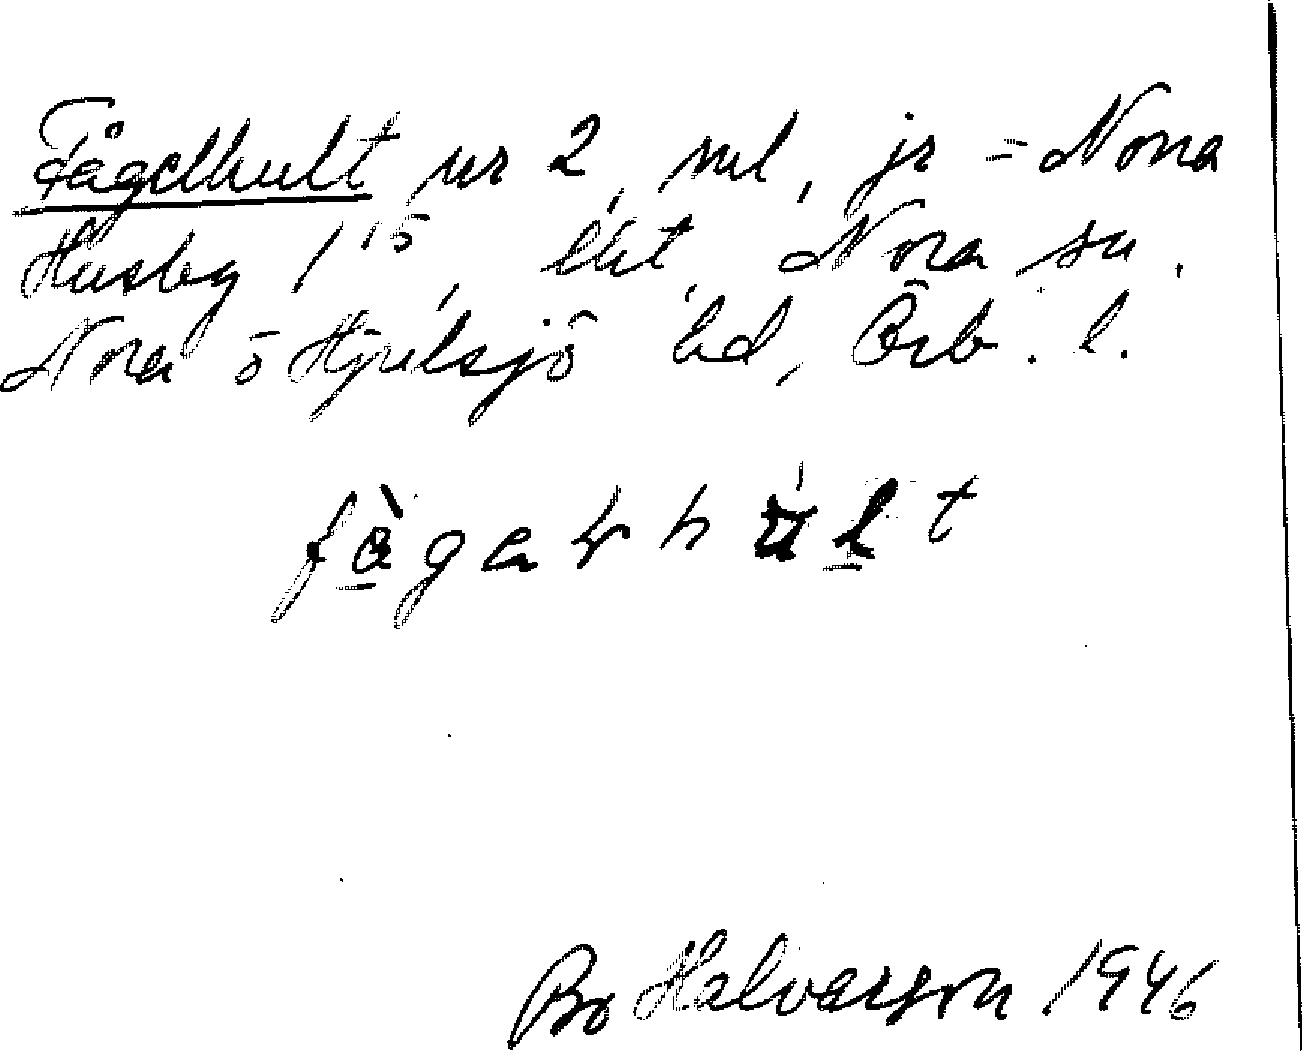 Fågelhult nr 2, ml, jr = Nora
Husby 1¹⁵, lht, Nora sn,
Nora o Hjulsjö hd, Örb. l.
Bo Halvarson 1946